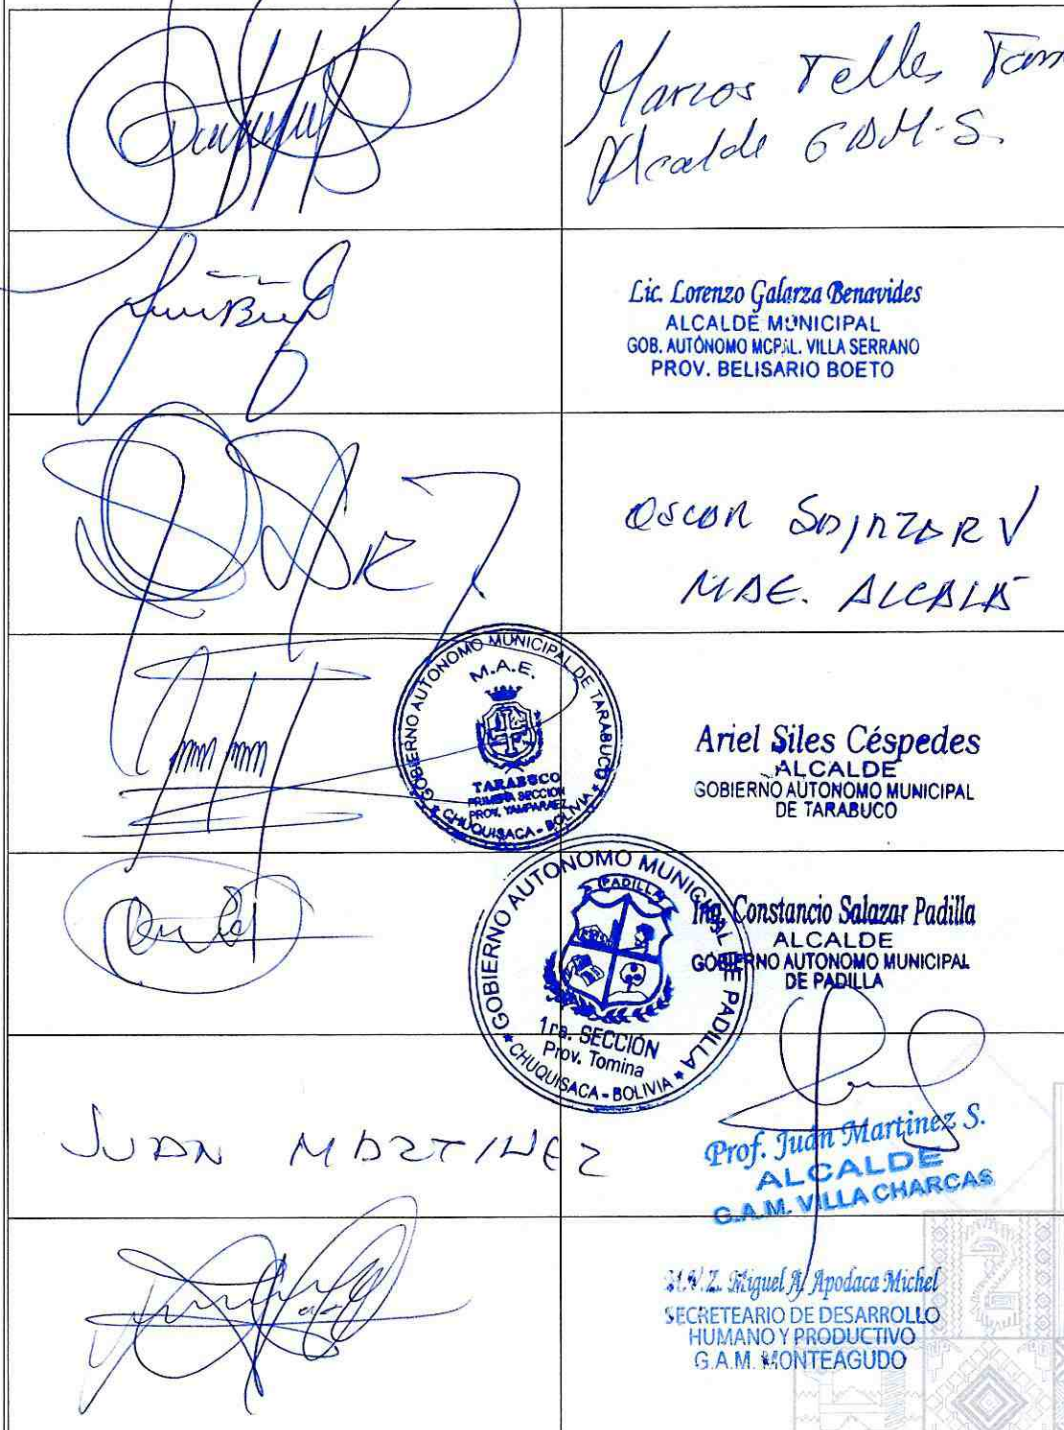 Marcos Telles
Alcalde GAM-S.
Lic. Lorenzo Galarza Benavides
ALCALDE MUNICIPAL
GOB. AUTÓNOMO MCPAL. VILLA SERRANO
PROV. BELISARIO BOETO
OSCAR V
MAE. ALCALÁ
GOBIERNO AUTONOMO MUNICIPAL DE TARABUCO
M.A.E.
TARABUCO
PRIMERA SECCION
PROV. YAMPARAEZ
CHUQUISACA - BOLIVIA
Ariel Siles Céspedes
ALCALDE
GOBIERNO AUTONOMO MUNICIPAL
DE TARABUCO
GOBIERNO AUTONOMO MUNICIPAL DE PADILLA
PADILLA
1ra. SECCIÓN
Prov. Tomina
CHUQUISACA - BOLIVIA
Ing. Constancio Salazar Padilla
ALCALDE
GOBIERNO AUTONOMO MUNICIPAL
DE PADILLA
JUAN MARTINEZ
Prof. Juan Martinez S.
ALCALDE
G.A.M. VILLA CHARCAS
M.V.Z. Miguel A. Apodaca Michel
SECRETEARIO DE DESARROLLO
HUMANO Y PRODUCTIVO
G.A.M. MONTEAGUDO